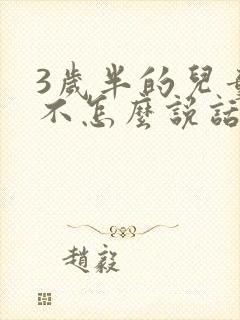 3歲半的兒
不怎麼說話
趙毅